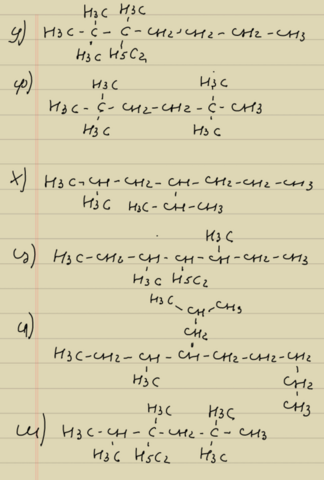 H3C H3C
у) H3C-C-C-CH2-CH2-CH2-CH3
H3C H5C2
H3C H3C
ф) H3C-C-CH2-CH2-C-CH3
H3C H3C
х) H3C-CH-CH2-CH-CH2-CH2-CH3
H3C H3C-CH-CH3
H3C
ц) H3C-CH2-CH-CH-CH-CH2-CH3
H3C H5C2
H3C CH3
CH
CH2
ч) H3C-CH2-CH-CH-CH2-CH2-CH2
H3C CH2
CH3
H3C H3C
ш) H3C-CH-C-CH2-C-CH3
H3C H5C2 H3C